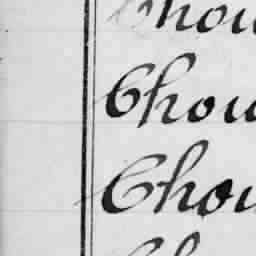 Chou
Chou
Chou